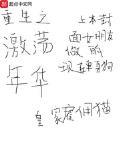 起点中文网
重生之
激荡
年华
上本封
面女朋友
做的
现 狗
皇家雇佣猫